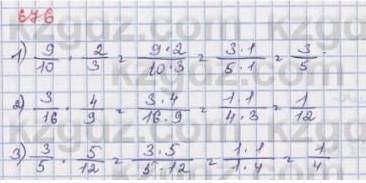 676
1) 9/10 · 2/3 = 9·2/10·3 = 3·1/5·1 = 3/5.
2) 3/16 · 4/9 = 3·4/16·9 = 1·1/4·3 = 1/12
3) 3/5 · 5/12 = 3·5/5·12 = 1·1/1·4 = 1/4